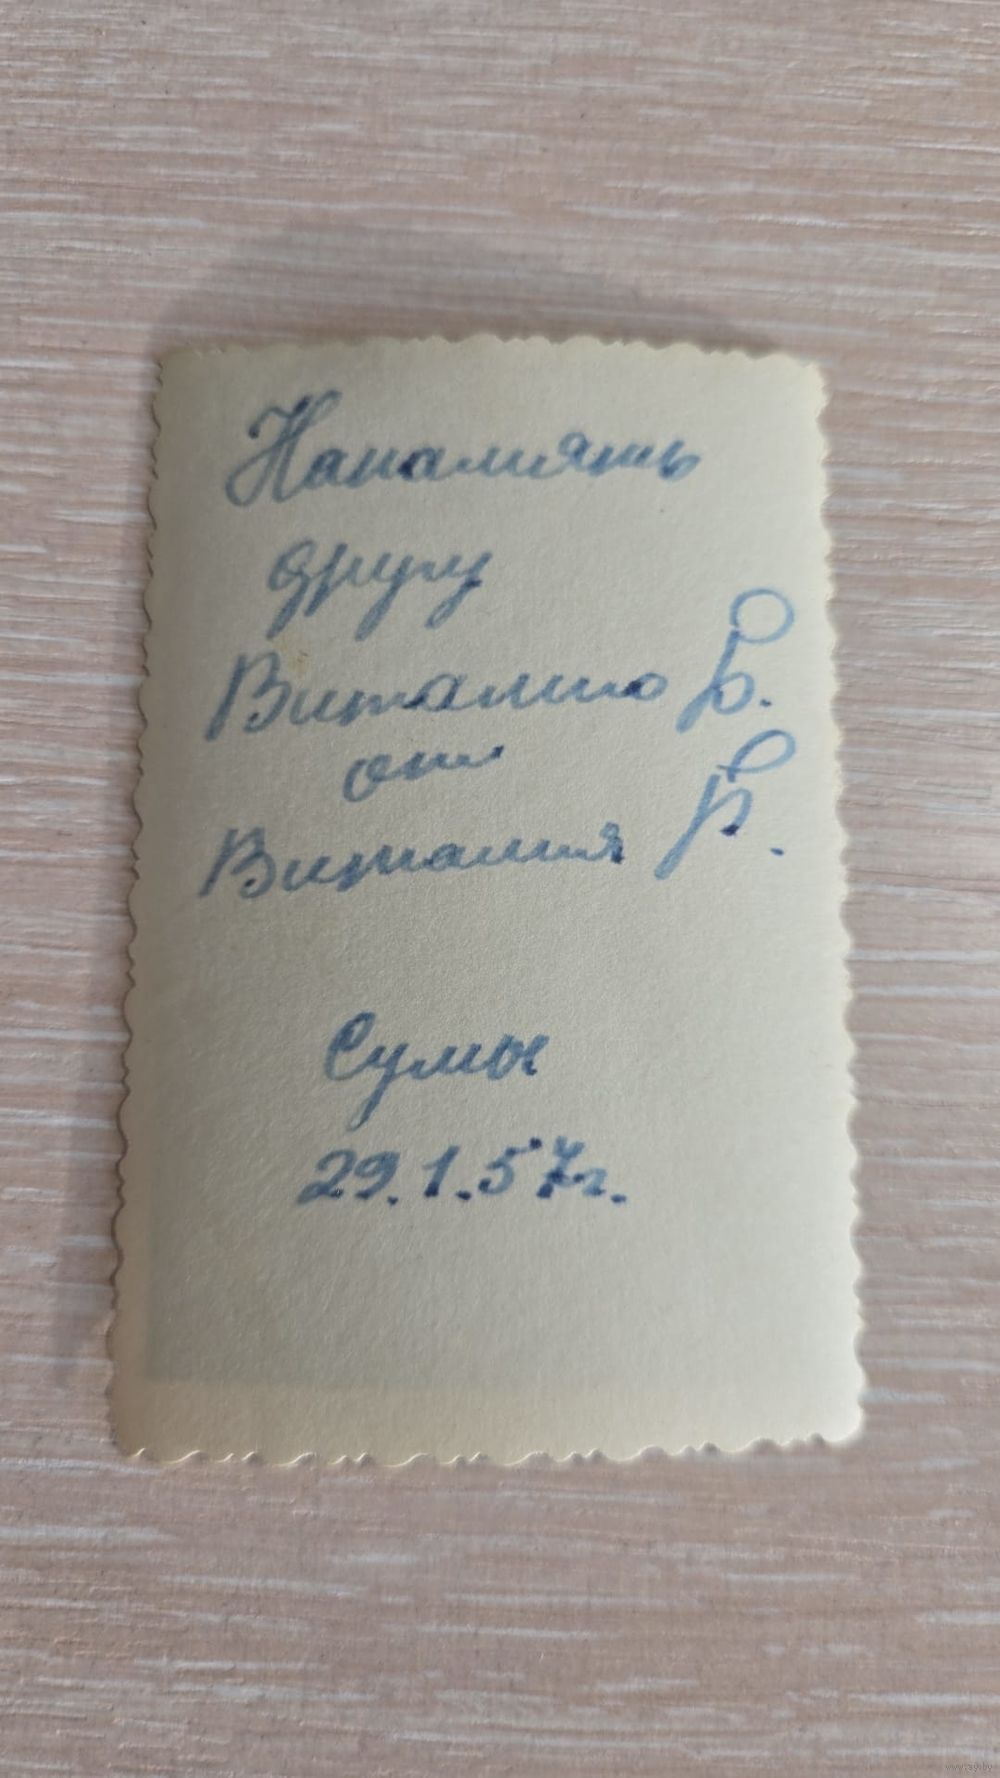 Напамять
другу
Виталию Б.
от
Виталия Р.
Сумы
29.1.57г.